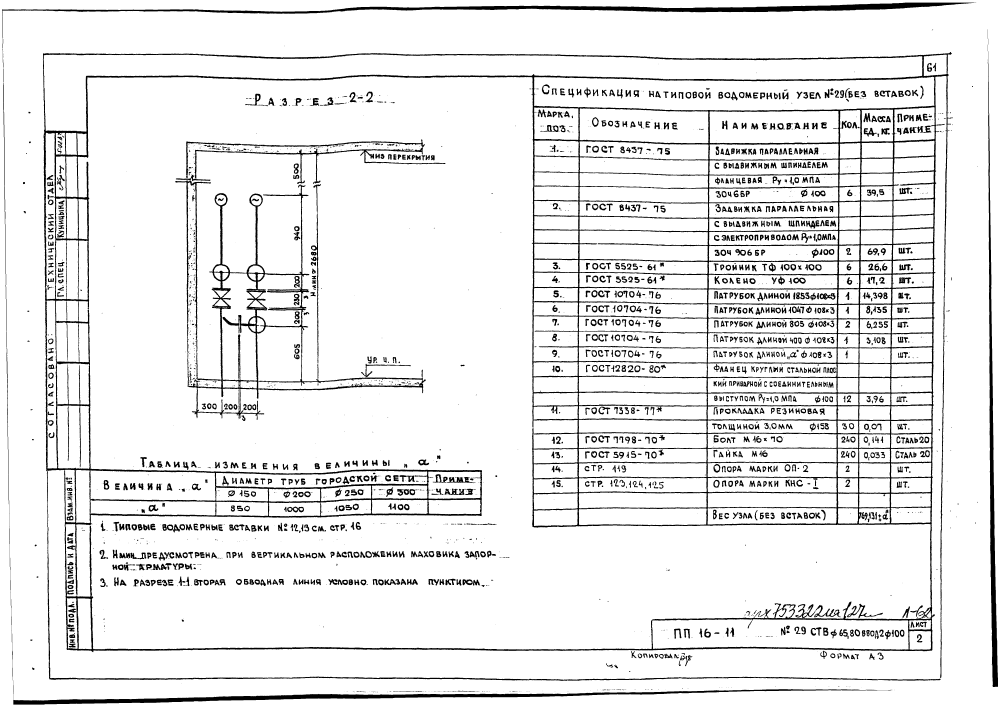 61
Разрез 2-2
низ перекрытия
500
940
Нмин=2680
200
230
3
3
200
605
ур. ч.п.
300 200 200
3
Таблица изменения величины „а"
Величина „а" Диаметр труб городской сети Приме-чание
φ150 φ200 φ250 φ300
„а" 850 1000 1050 1100
1. Типовые водомерные вставки №12,13 см. стр. 16
2. Нмин. предусмотрена при вертикальном расположении маховика запор-
ной арматуры.
3. На разрезе 1-1 вторая обводная линия условно показана пунктиром.
Спецификация на типовой водомерный узел №29 (без вставок)
Марка, поз. Обозначение Наименование Кол. Масса ед., кг. Приме-чание
1. ГОСТ 8437-75 Задвижка параллельная
с выдвижным шпинделем
фланцевая Ру=1,0 МПа
30ч6бр φ100 6 39,5 шт.
2. ГОСТ 8437-75 Задвижка параллельная
с выдвижным шпинделем
с электроприводом Ру=1,0МПа
30ч 906бр φ100 2 69,9 шт.
3. ГОСТ 5525-61* Тройник ТФ 100×100 6 26,6 шт.
4. ГОСТ 5525-61* Колено УФ 100 6 17,2 шт.
5. ГОСТ 10704-76 Патрубок длиной 1853 φ108×3 1 14,398 шт.
6. ГОСТ 10704-76 Патрубок длиной 1047 φ108×3 1 8,135 шт.
7. ГОСТ 10704-76 Патрубок длиной 805 φ108×3 2 6,255 шт.
8. ГОСТ 10704-76 Патрубок длиной 400 φ108×3 1 3,108 шт.
9. ГОСТ 10704-76 Патрубок длиной „а" φ108×3 1 шт.
10. ГОСТ 12820-80* Фланец круглый стальной плос
кий приварной с соединительным
выступом Ру=1,0 МПа φ100 12 3,96 шт.
11. ГОСТ 7338-77* Прокладка резиновая
толщиной 3,0мм φ158 30 0,07 шт.
12. ГОСТ 7798-70* Болт М16×70 240 0,141 Сталь 20
13. ГОСТ 5915-70* Гайка М16 240 0,033 Сталь 20
14. стр. 119 Опора марки ОП-2 2 шт.
15. стр. 123,124,125 Опора марки КНС-I 2 шт.
Вес узла (без вставок) 769,131+а"
арх 753322 на 127
Л-62
ПП 16-11 №29 СТВ φ65,80 ввод 2φ100 Лист 2
Копировал
Формат А3
Согласовано
Технический отдел
Гл. спец. Куницына
Взам.инв.№
Подпись и дата
Инв.№подл.